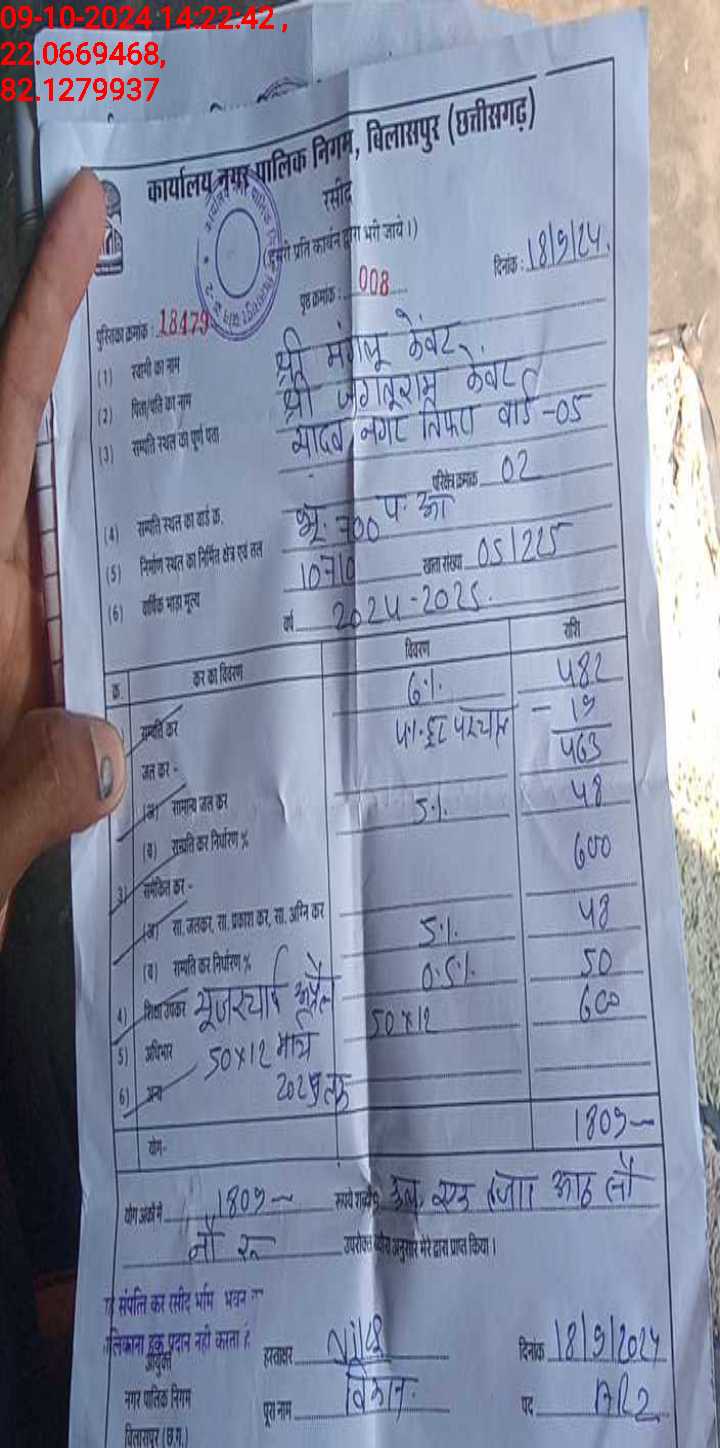 09-10-2024 14:22:42 ,
22.0669468,
82.1279937
कार्यालय नगर पालिक निगम, बिलासपुर (छत्तीसगढ़)
रसीद
(दूसरी प्रति कार्बन द्वारा भरी जाये।)
दिनांक : 18/9/24
पुस्तिका क्रमांक : 18479 पृष्ठ क्रमांक : 008
(1) स्वामी का नाम श्री मंगलू केंवट
(2) पिता/पति का नाम श्री जगतूराम केंवट
(3) सम्पत्ति स्थल का पूर्ण पता यादव नगर तिफरा वार्ड -05
(4) सम्पत्ति स्थल का वार्ड क्र. परिक्षेत्र क्रमांक 02
(5) निर्माण स्थल का निर्मित क्षेत्र एवं तल भू. 700 प. आ
(6) वार्षिक भाड़ा मूल्य 10710 खाता संख्या 05/225
वर्ष 2024-2025.
क्र. कर का विवरण विवरण राशि
सम्पत्ति कर 6% 482
4% छूट पश्चात - 19
जल कर - 463
(अ) सामान्य जल कर 5% 48
(ब) सम्पत्ति कर निर्धारण % 600
3) समेकित कर -
(अ) सा. जलकर, सा. प्रकाश कर, सा. अग्नि कर 5% 48
(ब) सम्पति कर निर्धारण % 0.5% 50
4) शिक्षा उपकर यूजरचार्ज अप्रैल 50x12 600
5) अधिभार 50x12 मार्च
6) अन्य 2025 तक
योग- 1809~
योग अंकों में 1809~ रूपये शब्दों एक हजार आठ सौ
नौ रू उपरोक्त ब्यौरा अनुसार मेरे द्वारा प्राप्त किया।
संपत्ति कर रसीद भूमि भवन
मालिकाना हक प्रदान नहीं करता है
आयुक्त हस्ताक्षर दिनांक 18/9/2024
नगर पालिक निगम पूरा नाम पद
बिलासपुर (छ.ग.)